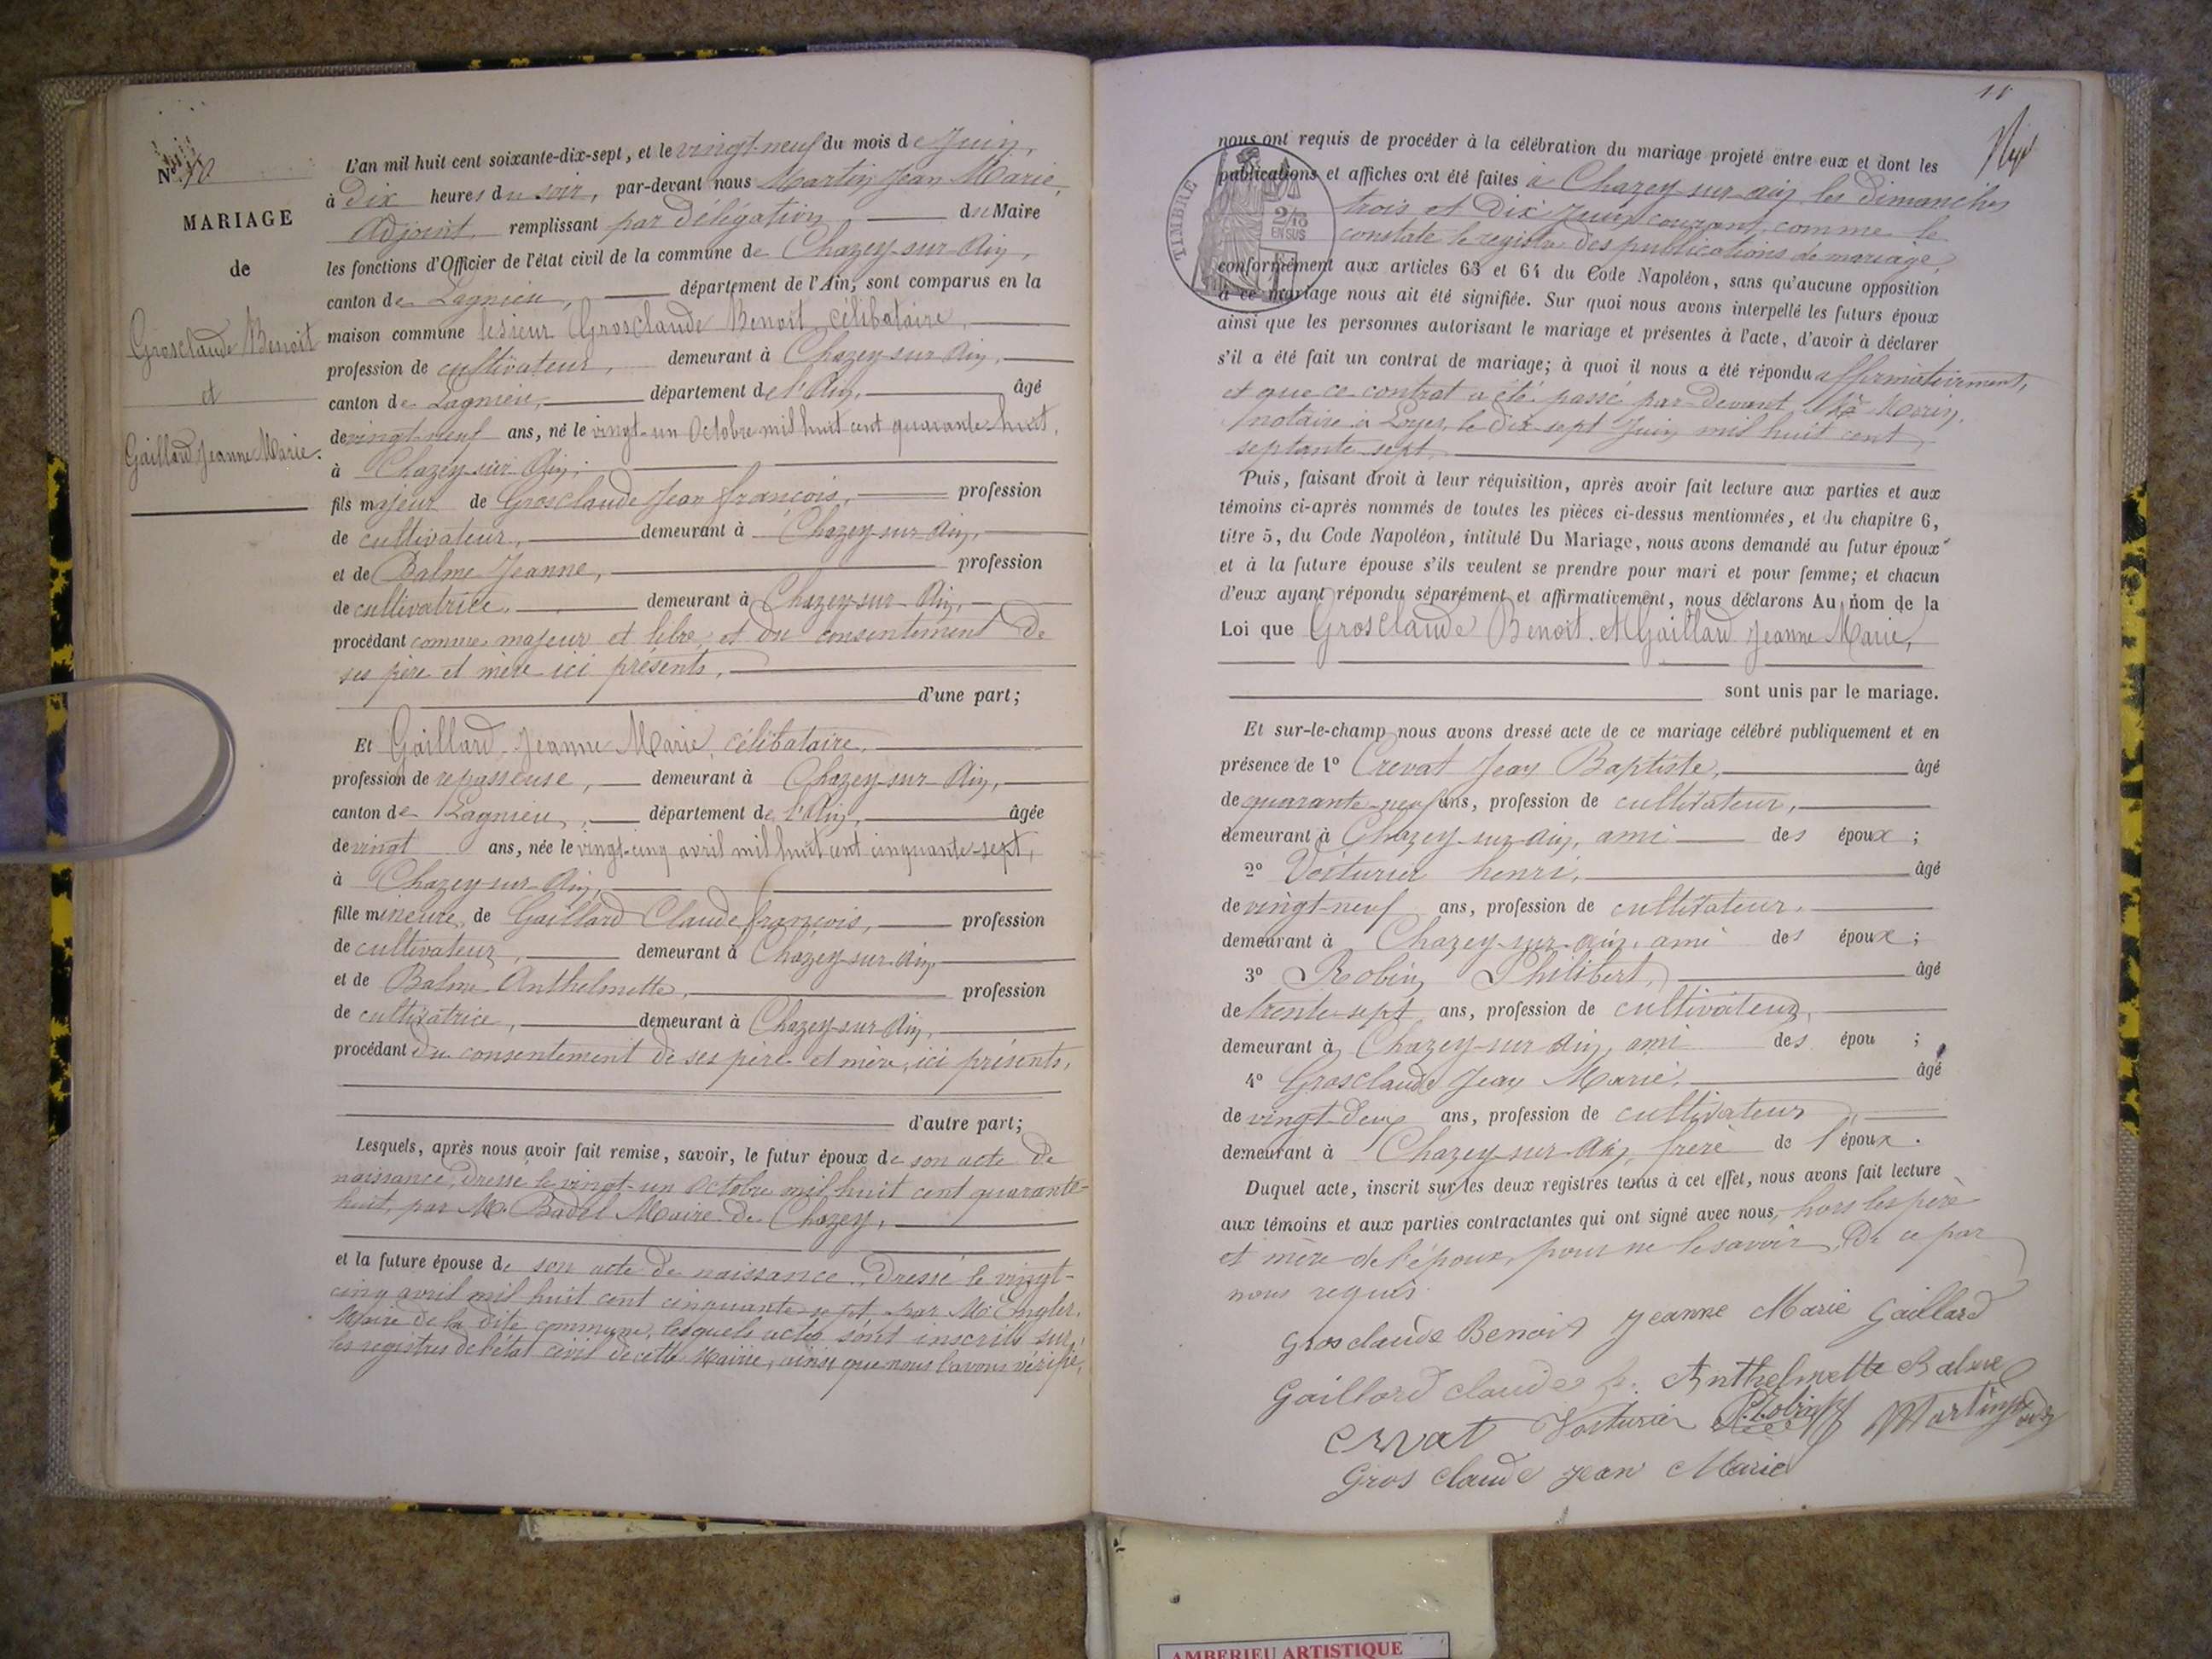 N° 10
MARIAGE
de
Grosclaude Benoit
et
Gaillard Jeanne Marie.
L'an mil huit cent soixante-dix-sept, et le vingt-neuf du mois de Juin,
à Dix heures du soir, par-devant nous Martin Jean Marie,
Adjoint, remplissant par délégation du Maire
les fonctions d'Officier de l'état civil de la commune de Chazey-sur-Ain,
canton de Lagnieu, département de l'Ain, sont comparus en la
maison commune le sieur Grosclaude Benoit, célibataire,
profession de cultivateur, demeurant à Chazey-sur-Ain,
canton de Lagnieu, département de l'Ain, âgé
de vingt-neuf ans, né le vingt-un Octobre mil huit cent quarante-huit,
à Chazey-sur-Ain,
fils majeur de Grosclaude Jean françois, profession
de cultivateur, demeurant à Chazey-sur-Ain,
et de Balme Jeanne, profession
de cultivatrice, demeurant à Chazey-sur-Ain,
procédant comme majeur et libre, et du consentement de
ses père et mère ici présents,
d'une part;
Et Gaillard Jeanne Marie, célibataire,
profession de repasseuse, demeurant à Chazey-sur-Ain,
canton de Lagnieu, département de l'Ain, âgée
de vingt ans, née le vingt-cinq avril mil huit cent cinquante-sept,
à Chazey-sur-Ain,
fille mineure de Gaillard Claude françois, profession
de cultivateur, demeurant à Chazey-sur-Ain,
et de Balme Anthelmette, profession
de cultivatrice, demeurant à Chazey-sur-Ain,
procédant du consentement de ses père et mère, ici présents,
d'autre part;
Lesquels, après nous avoir fait remise, savoir, le futur époux de son acte de
naissance, dressé le vingt-un Octobre mil huit cent quarante-
huit, par M. Badel Maire de Chazey,
et la future épouse de son acte de naissance, Dressé le vingt-
cinq avril mil huit cent cinquante-sept, par M. Engler,
Maire de la dite commune, lesquels actes sont inscrits sur
les registres de l'état civil de cette Mairie, ainsi que nous l'avons vérifié,
11
nous ont requis de procéder à la célébration du mariage projeté entre eux et dont les
publications et affiches ont été faites à Chazey-sur-ain, les dimanches
trois et Dix Juin courant, comme le
constate le registre des publications de mariage,
TIMBRE
2/10
EN SUS
conformément aux articles 63 et 64 du Code Napoléon, sans qu'aucune opposition
à ce mariage nous ait été signifiée. Sur quoi nous avons interpellé les futurs époux
ainsi que les personnes autorisant le mariage et présentes à l'acte, d'avoir à déclarer
s'il a été fait un contrat de mariage; à quoi il nous a été répondu affirmativement,
et que ce contrat a été passé par-devant Me Morin,
notaire à Loyes, le dix-sept Juin mil huit cent
septante-sept,
Puis, faisant droit à leur réquisition, après avoir fait lecture aux parties et aux
témoins ci-après nommés de toutes les pièces ci-dessus mentionnées, et du chapitre 6,
titre 5, du Code Napoléon, intitulé Du Mariage, nous avons demandé au futur époux
et à la future épouse s'ils veulent se prendre pour mari et pour femme; et chacun
d'eux ayant répondu séparément et affirmativement, nous déclarons Au nom de la
Loi que Grosclaude Benoit et Gaillard Jeanne Marie,
sont unis par le mariage.
Et sur-le-champ nous avons dressé acte de ce mariage célébré publiquement et en
présence de 1° Crevat Jean Baptiste, âgé
de quarante-neuf ans, profession de cultivateur,
demeurant à Chazey-sur-Ain, ami des époux;
2° Voiturier henri, âgé
de vingt-neuf ans, profession de cultivateur,
demeurant à Chazey-sur-ain, ami des époux;
3° Robin Philibert, âgé
de trente-sept ans, profession de cultivateur,
demeurant à Chazey-sur-Ain, ami des épou ;
4° Grosclaude Jean Marie, âgé
de vingt-deux ans, profession de cultivateur,
demeurant à Chazey-sur-Ain, frère de l'époux.
Duquel acte, inscrit sur les deux registres tenus à cet effet, nous avons fait lecture
aux témoins et aux parties contractantes qui ont signé avec nous, hors les père
et mère de l'époux, pour ne le savoir, De ce par
nous requis.
Gros claude Benoit Jeanne Marie Gaillard
Gaillard claude f. Anthelmette Balme
Crevat Voiturier P. Robin Martin
Gros claude Jean Marie
AMBERIEU ARTISTIQUE